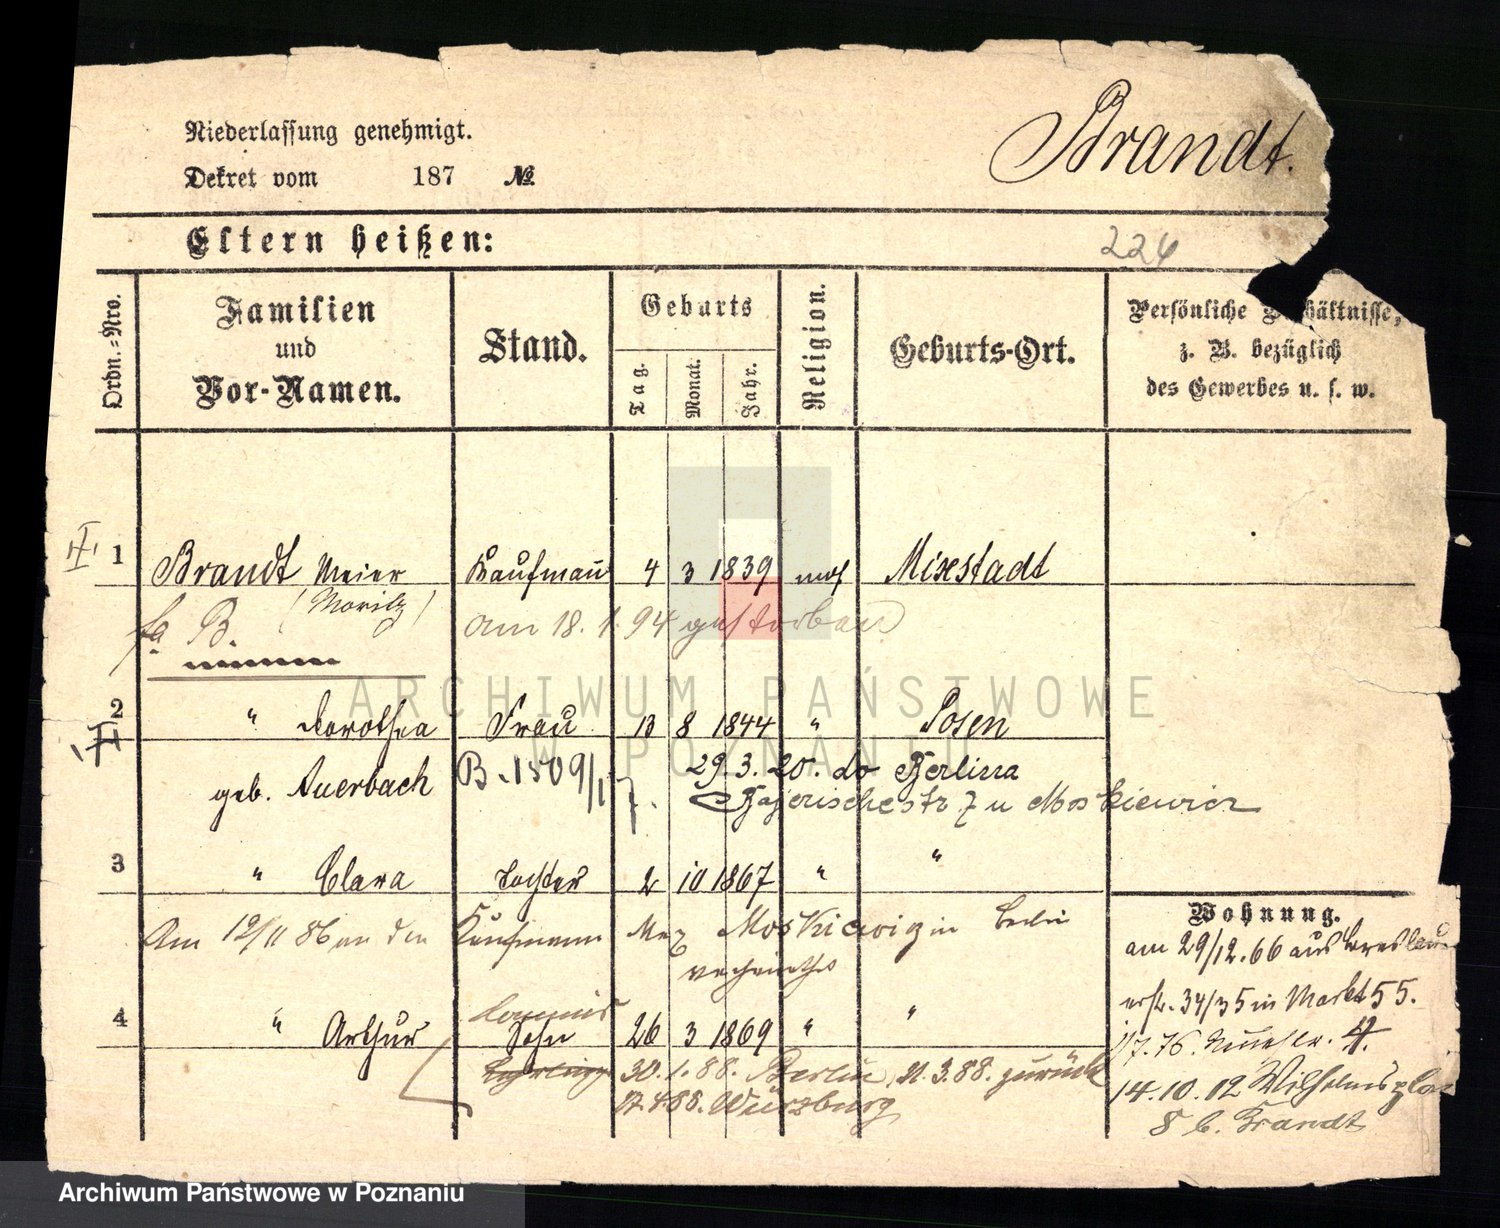 Niederlassung genehmigt.
Brandt.
Dekret vom 187 №
Eltern heißen:
224
Ordn.-Nro.
Familien
und
Vor-Namen.
Stand.
Geburts
Tag.
Monat.
Jahr.
Religion.
Geburts-Ort.
Persönliche hältnisse,
z. B. bezüglich
des Gewerbes u. s. w.
1 Brandt Meier Kaufmann 4 3 1839 mos Mixstadt
(Moritz)
fa B. am 18. 1. 94 gestorben
ARCHIWUM PAŃSTWOWE
W POZNANIU
2 " Dorothea Frau 13 8 1844 " Posen
geb. Auerbach B. 1509/17. 29. 3. 20. do Berlina
Bajerischestr 7 u Moskiewicz
3 " Clara Tochter 2 10 1867 " "
Am 12/11 86 an den Kaufmann Max Moskiewicz in Berlin
verheirathet
Commis
4 " Arthur Sohn 26 3 1869 " "
Lehrling 30. 1. 88. Berlin, 21. 3. 88. zurück
17. 4. 88. Würzburg
Wohnung.
am 29/12. 66 aus Breslau
34/35 in Markt 55.
1/7. 76. 4.
14. 10. 02 Wilhelmsplatz
8 b. Brandt
Archiwum Państwowe w Poznaniu